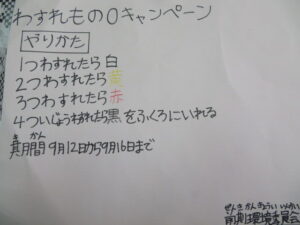 わすれもの0キャンペーン
やりかた
1つわすれたら白
2つわすれたら黄
3つわすれたら赤
4ついじょうわすれたら黒をふくろにいれる
き かん
期間 9月12日から9月16日まで
ぜんき かんきょういいんかい
前期環境委員会